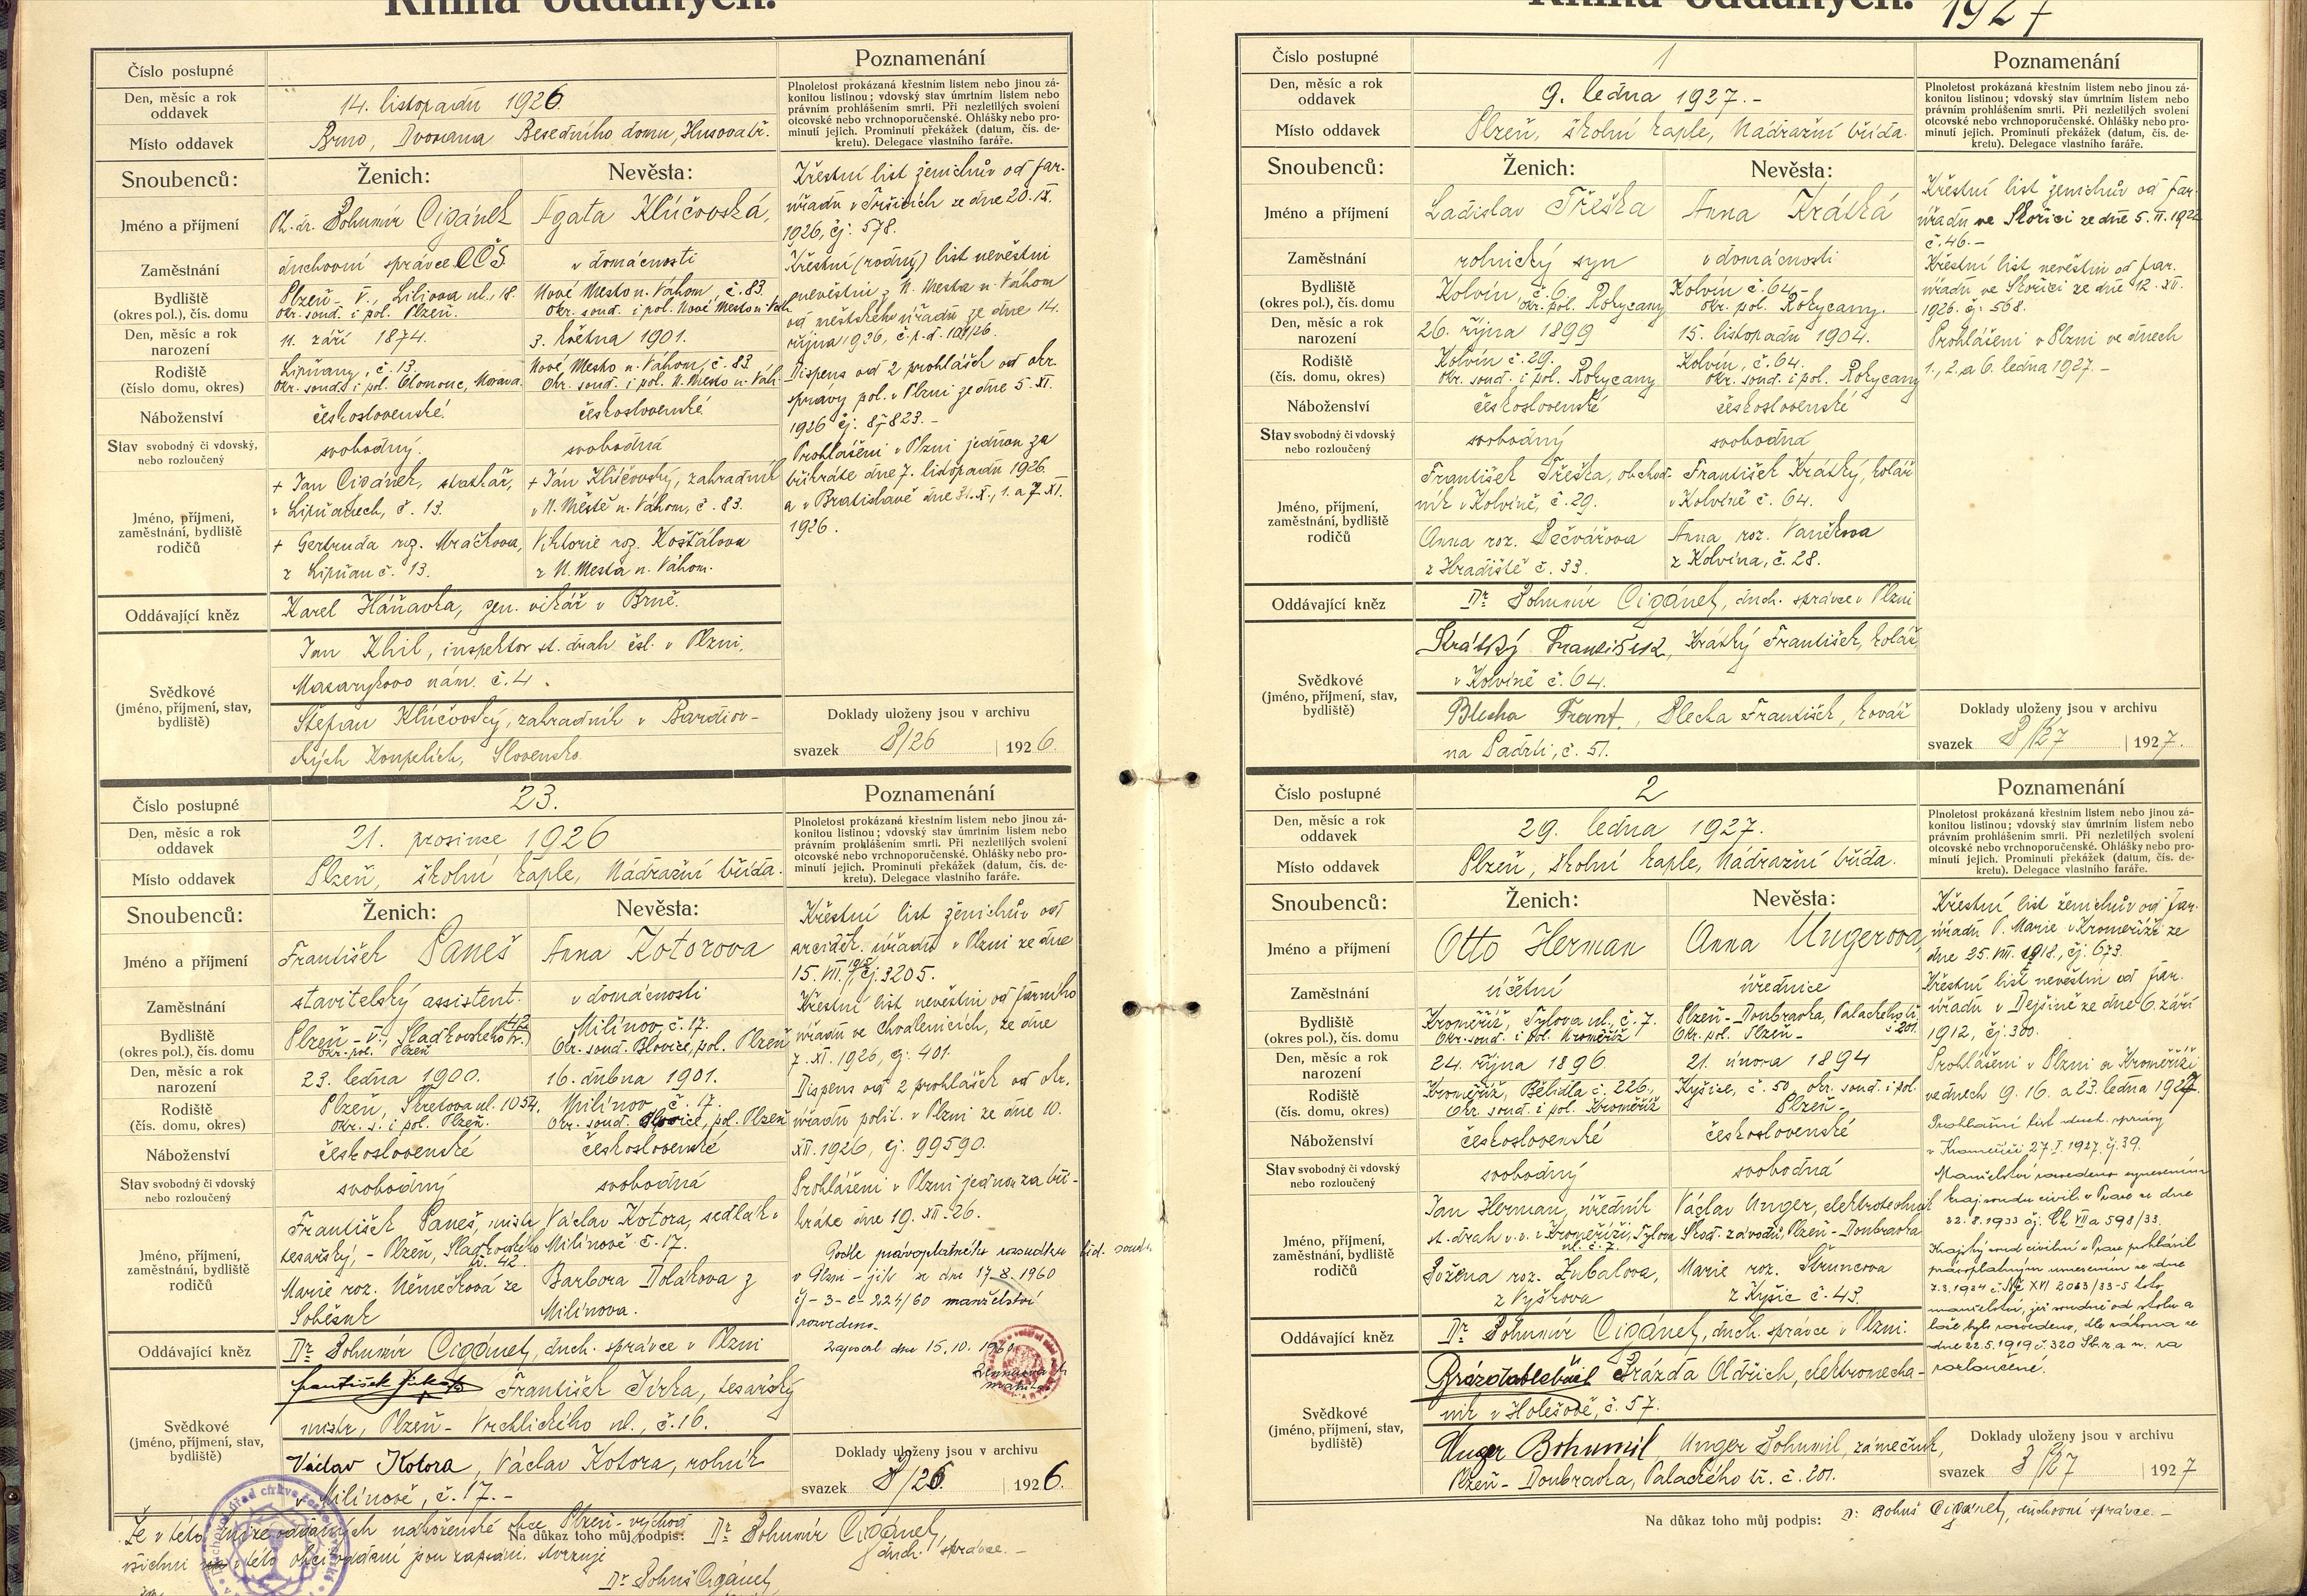 Kniha oddaných.
Číslo postupné
Den, měsíc a rok oddavek
14. listopadu 1926
Místo oddavek
Brno, Dvorana Besedního domu, Husova tř.
Poznamenání
Plnoletost prokázaná křestním listem nebo jinou zá-
konitou listinou; vdovský stav úmrtním listem nebo
právním prohlášením smrti. Při nezletilých svolení
otcovské nebo vrchnoporučenské. Ohlášky nebo pro-
minutí jejich. Prominutí překážek (datum, čís. de-
kretu). Delegace vlastního faráře.
Snoubenců: Ženich: Nevěsta:
Jméno a příjmení
Ph. dr. Bohumír Cigánek
Agata Klúčovská,
Zaměstnání
duchovní správce CČS
v domácnosti
Bydliště (okres pol.), čís. domu
Plzeň - V., Liliova ul., 18.
Okr. soud. i pol. Plzeň.
Nové Mesto n. Váhom, č. 83.
Okr. soud. i pol. Nové Mesto n. Váh.
Den, měsíc a rok narození
11. září 1874.
3. května 1901.
Rodiště (číslo domu, okres)
Lipňany, č. 13.
Okr. soud. i pol. Olomouc, Morava.
Nové Mesto n. Váhom, č. 83
Okr. soud. i pol. N. Mesto n. Váh.
Náboženství
československé
československé
Stav svobodný či vdovský, nebo rozloučený
svobodný.
svobodná
Jméno, příjmení, zaměstnání, bydliště rodičů
+ Jan Cigánek, statkář,
v Lipňanech, č. 13.
+ Gertruda roz. Mračkova,
z Lipňan č. 13.
+ Ján Klúčovský, zahradník
v N. Městě n. Váhom, č. 83.
Viktorie roz. Košťálova
z N. Mesta n. Váhom.
Oddávající kněz
Karel Háňavka, gen. vikář v Brně.
Svědkové (jméno, příjmení, stav, bydliště)
Jan Khil, inspektor st. drah čsl. v Plzni,
Masarykovo nám. č. 4.
Štěpan Klúčovský, zahradník v Bardiov-
ských Koupelích, Slovensko.
Křestní list ženichův od far.
úřadu v Tršicích ze dne 20. IX.
1926, čj. 578.
Křestní (rodný) list nevěstin
z N. Mesta n. Váhom
od městského úřadu ze dne 14.
října 1926,
Dispens od 2 prohlášek od okr.
správy pol. v Plzni ze dne 5. XI.
1926 čj. 87823. -
Prohlášeni v Plzni jednou za
třikráte dne 7. listopadu 1926.
a v Bratislavě dne 31. X., 1. a 7. XI.
1926.
Doklady uloženy jsou v archivu
svazek 8/26 1926.
Číslo postupné
23.
Den, měsíc a rok oddavek
21. prosince 1926
Místo oddavek
Plzeň, školní kaple, Nádražní třída.
Poznamenání
Plnoletost prokázaná křestním listem nebo jinou zá-
konitou listinou; vdovský stav úmrtním listem nebo
právním prohlášením smrti. Při nezletilých svolení
otcovské nebo vrchnoporučenské. Ohlášky nebo pro-
minutí jejich. Prominutí překážek (datum, čís. de-
kretu). Delegace vlastního faráře.
Snoubenců: Ženich: Nevěsta:
Jméno a příjmení
František Paneš
Anna Kotorova
Zaměstnání
stavitelský assistent.
v domácnosti
Bydliště (okres pol.), čís. domu
Plzeň - V., Sladkovského tř. 42
Okr. pol. Plzeň
Milínov, č. 17.
Okr. soud. Blovice, pol. Plzeň
Den, měsíc a rok narození
23. ledna 1900.
16. dubna 1901.
Rodiště (čís. domu, okres)
Plzeň, Škretova ul. 1054.
Okr. s. i pol. Plzeň.
Milínov, č. 17.
Okr. soud. Blovice, pol. Plzeň
Náboženství
československé
československé
Stav svobodný či vdovský nebo rozloučený
svobodný
svobodná
Jméno, příjmení, zaměstnání, bydliště rodičů
František Paneš, mistr
tesařský, - Plzeň, Sladkovského
tř. 42.
Marie roz. Němečková ze
Soběsuk
Václav Kotora, sedlák v
Milínově č. 17.
Barbora Dolákova z
Milínova.
Oddávající kněz
Dr. Bohumír Cigánek, duch. správce v Plzni
Svědkové (jméno, příjmení, stav, bydliště)
František Jirka, tesařský
mistr, Plzeň - Vrchlického ul., č. 16.
Václav Kotora, Václav Kotora, rolník
v Milínově, č. 17. -
Křestní list ženichův od
arciděk. úřadu v Plzni ze dne
15. VII. 1915 čj. 3205.
Křestní list nevěstin od farního
úřadu ve Chválenicích, ze dne
7. XI. 1926, čj. 401.
Dispens od 2 prohlášek od okr.
úřadu polit. v Plzni ze dne 10.
XII. 1926, čj. 99590.
Prohlášeni v Plzni jednou za tři-
kráte dne 19. XII. 26.
Podle právoplatného rozsudku lid. soudu
v Plzni - jih ze dne 17. 8. 1960
čj - 3-C-224/60 manželství
rozvedeno.
Zapsal dne 15. 10. 1960
Doklady uloženy jsou v archivu
svazek 8/26. 1926.
Že v této knize oddaných náboženské obce Plzeň - východ
všichni v této obci oddaní jsou zapsáni, stvrzuje
Na důkaz toho můj podpis: Dr. Bohumír Cigánek,
duch. správce. -
Dr. Bohuš Cigánek,
Kniha oddaných. 1927
Číslo postupné
1
Den, měsíc a rok oddavek
9. ledna 1927. -
Místo oddavek
Plzeň, školní kaple, Nádražní třída.
Poznamenání
Plnoletost prokázaná křestním listem nebo jinou zá-
konitou listinou; vdovský stav úmrtním listem nebo
právním prohlášením smrti. Při nezletilých svolení
otcovské nebo vrchnoporučenské. Ohlášky nebo pro-
minutí jejich. Prominutí překážek (datum, čís. de-
kretu). Delegace vlastního faráře.
Snoubenců: Ženich: Nevěsta:
Jméno a příjmení
Ladislav Třeška
Anna Krátká
Zaměstnání
rolnický syn
v domácnosti
Bydliště (okres pol.), čís. domu
Kolvín č. 6.
Okr. pol. Rokycany
Kolvín č. 64. -
Okr. pol. Rokycany.
Den, měsíc a rok narození
26. října 1899
15. listopadu 1904.
Rodiště (čís. domu, okres)
Kolvín č. 29.
Okr. soud. i pol. Rokycany
Kolvín, č. 64.
Okr. soud. i pol. Rokycany
Náboženství
československé
československé
Stav svobodný či vdovský nebo rozloučený
svobodný
svobodná
Jméno, příjmení, zaměstnání, bydliště rodičů
František Třeška, obchod-
ník v Kolvíně, č. 29.
Anna roz. Bečvářova
z Hradiště č. 33.
František Krátký, kolář
v Kolvíně č. 64.
Anna, roz. Vaněkova
z Kolvína, č. 28.
Oddávající kněz
Dr. Bohumír Cigánek, duch. správce v Plzni
Svědkové (jméno, příjmení, stav, bydliště)
Krátký František, Krátký František, kolář
v Kolvíně č. 64.
Blecha Frant., Blecha František, kovář
na Padrti, č. 51.
Křestní list ženichův od far.
úřadu ve Skořici ze dne 5. II. 1922
č. 46. -
Křestní list nevěstin od far.
úřadu ve Skořici ze dne 12. XII.
1926. čj. 568.
Prohlášeni v Plzni ve dnech
1., 2. a 6. ledna 1927. -
Doklady uloženy jsou v archivu
svazek 8/27 1927.
Číslo postupné
2
Den, měsíc a rok oddavek
29. ledna 1927.
Místo oddavek
Plzeň, školní kaple, Nádražní třída.
Poznamenání
Plnoletost prokázaná křestním listem nebo jinou zá-
konitou listinou; vdovský stav úmrtním listem nebo
právním prohlášením smrti. Při nezletilých svolení
otcovské nebo vrchnoporučenské. Ohlášky nebo pro-
minutí jejich. Prominutí překážek (datum, čís. de-
kretu). Delegace vlastního faráře.
Snoubenců: Ženich: Nevěsta:
Jméno a příjmení
Otto Herman
Anna Ungerova
Zaměstnání
účetní
úřednice
Bydliště (okres pol.), čís. domu
Kroměříž, Tylova ul. č. 7.
Okr. soud. i pol. Kroměříž
Plzeň - Doubravka, Palackého tř.
č. 201.
Okr. pol. Plzeň -
Den, měsíc a rok narození
24. října 1896
21. února 1894
Rodiště (čís. domu, okres)
Kroměříž, Bělidla č. 226.,
Okr. soud. i pol. Kroměříž
Kyšice, č. 50, okr. soud. i pol.
Plzeň -
Náboženství
československé
československé
Stav svobodný či vdovský nebo rozloučený
svobodný
svobodná
Jméno, příjmení, zaměstnání, bydliště rodičů
Jan Herman, úředník
st. drah v. v. v Kroměříži, Tylova
ul. č. 7.
Božena roz. Zubalova,
z Vyškova
Václav Unger, elektrotechnik
Škod. závodů, Plzeň - Doubravka
Marie roz. Štruncova
z Kyšic č. 43.
Oddávající kněz
Dr. Bohumír Cigánek, duch. správce v Plzni.
Svědkové (jméno, příjmení, stav, bydliště)
Prázda Oldřich, elektromecha-
nik v Holešově, č. 57.
Unger Bohumil Unger Bohumil, zámečník,
Plzeň - Doubravka, Palackého tř. č. 201.
Křestní list ženichův od far.
úřadu P. Marie v Kroměříži ze
dne 25. VII. 1918., čj. 673.
Křestní list nevěstin od far.
úřadu v Dejšině ze dne 6. září
1912, čj. 300.
Prohlášeni v Plzni a Kroměříži
ve dnech 9. 16. a 23. ledna 1927.
Prohlašní list duch. správy
v Kroměříži 27. I. 1927. čj. 39.
Manželství rozvedeno usnesením
kraj. soudu civil. v Praze ze dne
22. 8. 1933 čj. Ck VIIa 598/33.
Krajský soud civilní v Praze prohlásil
právoplatným usnesením ze dne
7. 3. 1934 č. Nc XVI 2063/33-5 toto
manželství, jež soudně od stolu a
lože bylo rozvedeno, dle zákona ze
dne 22. 5. 1919 č. 320 Sb. z. a n. za
rozloučené.
Doklady uloženy jsou v archivu
svazek 8/27 1927
Na důkaz toho můj podpis: Dr. Bohuš Cigánek, duchovní správce. -